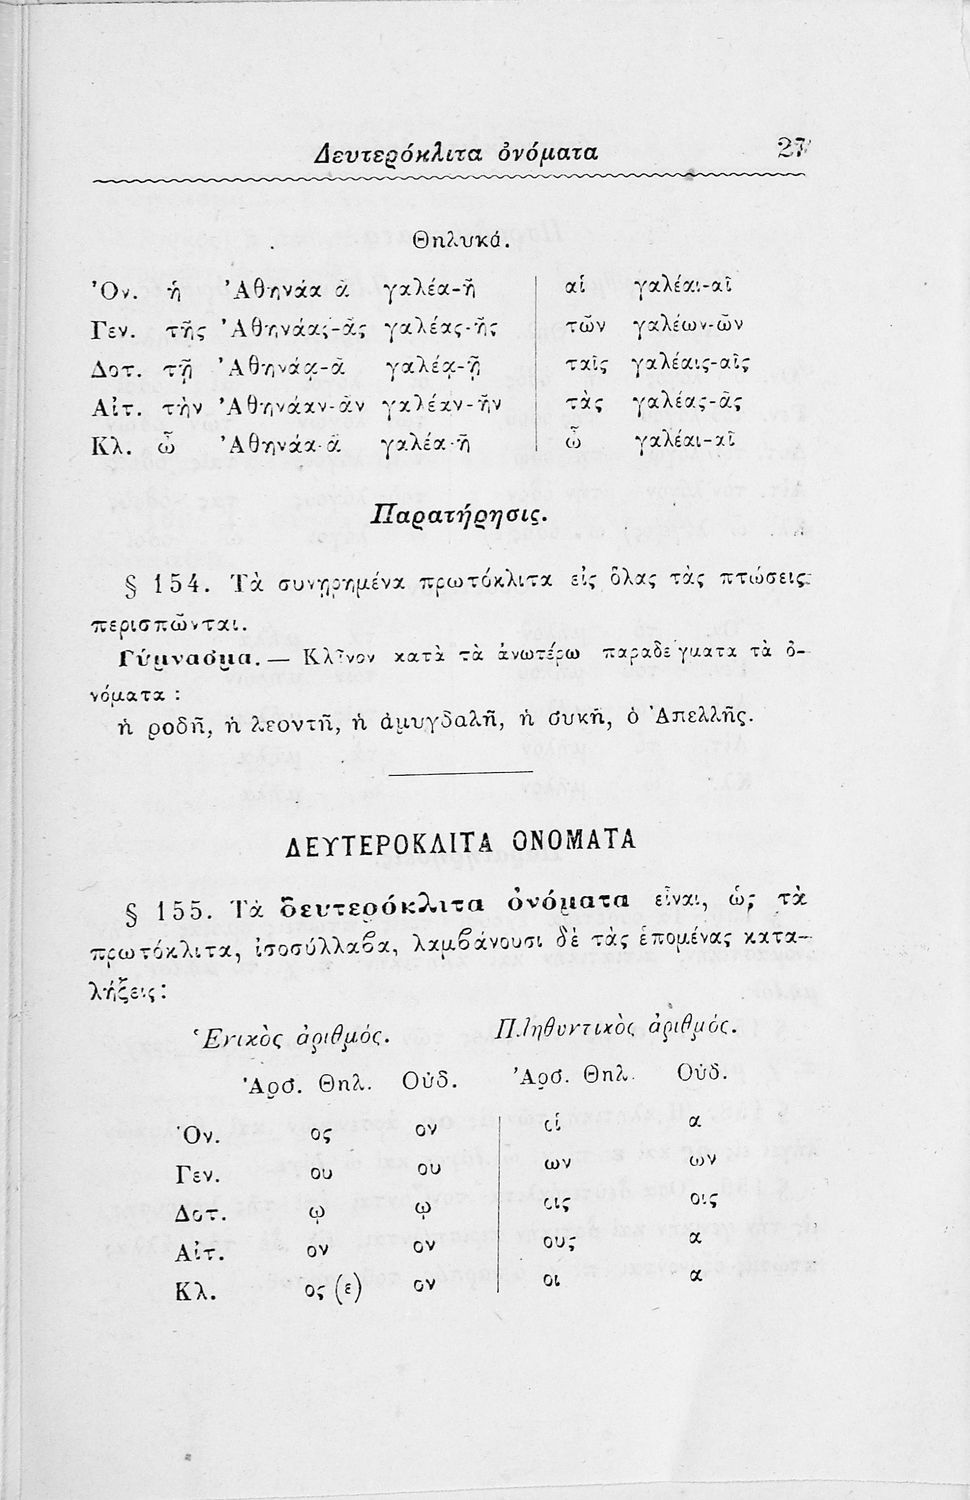 Δευτερόκλιτα ὀνόματα 27
Θηλυκά.
Ὀν. ἡ Ἀθηνάα ᾶ γαλέα-ῆ αἱ γαλέαι-αῖ
Γεν. τῆς Ἀθηνάας-ᾶς γαλέας-ῆς τῶν γαλέων-ῶν
Δοτ. τῇ Ἀθηνάᾳ-ᾷ γαλέᾳ-ῇ ταῖς γαλέαις-αῖς
Αἰτ. τὴν Ἀθηνάαν-ᾶν γαλέαν-ῆν τὰς γαλέας-ᾶς
Κλ. ὦ Ἀθηνάα-ᾶ γαλέα-ῆ ὦ γαλέαι-αῖ
Παρατήρησις.
§ 154. Τὰ συνῃρημένα πρωτόκλιτα εἰς ὅλας τὰς πτώσεις
περισπῶνται.
Γύμνασμα.— Κλῖνον κατὰ τὰ ἀνωτέρω παραδείγματα τὰ ὀ-
νόματα :
ἡ ροδῆ, ἡ λεοντῆ, ἡ ἀμυγδαλῆ, ἡ συκῆ, ὁ Ἀπελλῆς.
ΔΕΥΤΕΡΟΚΛΙΤΑ ΟΝΟΜΑΤΑ
§ 155. Τὰ δευτερόκλιτα ὀνόματα εἶναι, ὡς τὰ
πρωτόκλιτα, ἰσοσύλλαβα, λαμβάνουσι δὲ τὰς ἑπομένας κατα-
λήξεις:
Ἑνικὸς ἀριθμός. Πληθυντικὸς ἀριθμός.
Ἀρσ. Θηλ. Οὐδ. Ἀρσ. Θηλ. Οὐδ.
Ὀν. ος ον οι α
Γεν. ου ου ων ων
Δοτ. ῳ ῳ οις οις
Αἰτ. ον ον ους α
Κλ. ος (ε) ον οι α